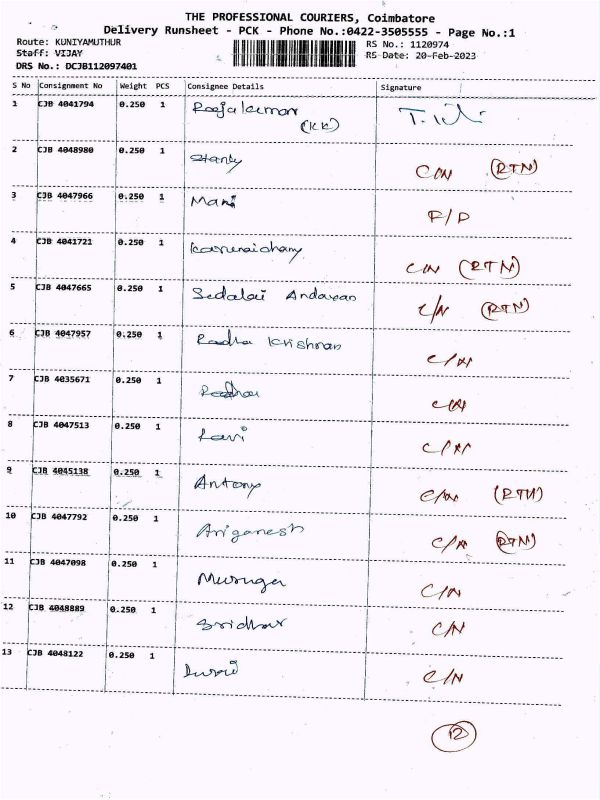 THE PROFESSIONAL COURIERS, Coimbatore
Delivery Runsheet - PCK - Phone No.:0422-3505555 - Page No.:1
Route: KUNIYAMUTHUR RS No.: 1120974
Staff: VIJAY RS Date: 20-Feb-2023
DRS No.: DCJB112097401
S No Consignment No Weight PCS Consignee Details Signature
1 CJB 4041794 0.250 1 Raajakumar
(KK)
2 CJB 4048980 0.250 1 Stanly C/N (RTN)
3 CJB 4047966 0.250 1 Mani F/D
4 CJB 4041721 0.250 1 C/N (RTN)
5 CJB 4047665 0.250 1 Sedalai Andavan C/N (RTN)
6 CJB 4047957 0.250 1 Radha Krishnan C/N
7 CJB 4035671 0.250 1 C/N
8 CJB 4047513 0.250 1 Ravi C/N
9 CJB 4045138 0.250 1 Antony C/N (RTN)
10 CJB 4047792 0.250 1 Ariganesh C/N (RTN)
11 CJB 4047098 0.250 1 Muruga C/N
12 CJB 4048889 0.250 1 Sridhar C/N
13 CJB 4048122 0.250 1 C/N
12